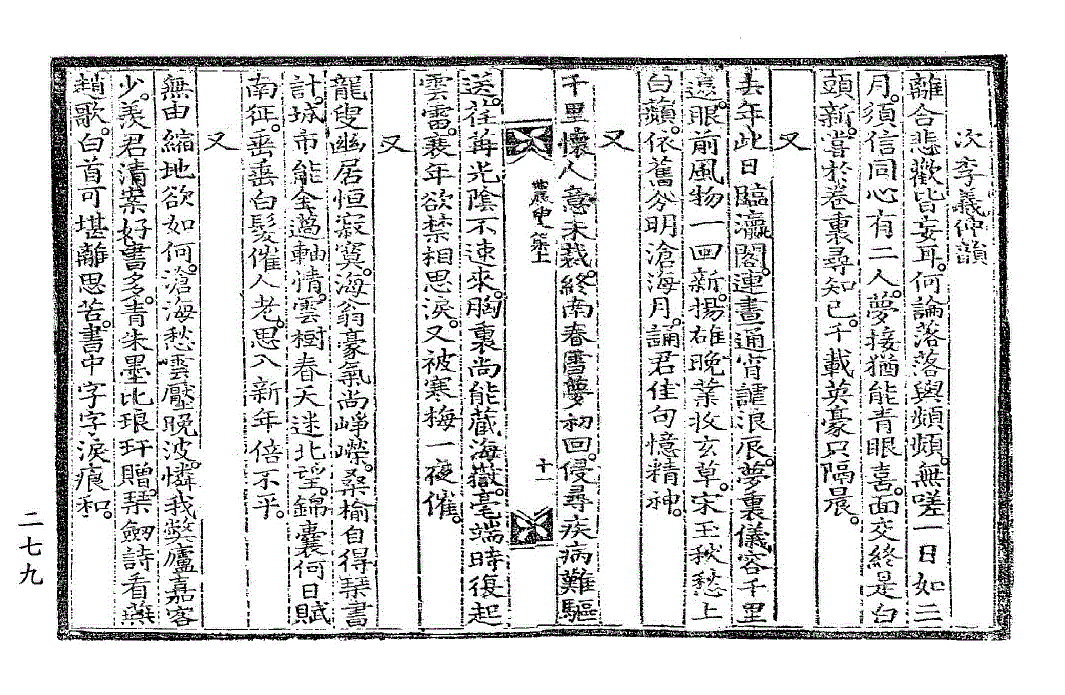 次李義仲韻
離合悲歡皆妄耳何論落落與頻頻無嗟一日如三
月須信同心有二人夢接猶能青眼喜面交終是白
頭新當於卷裏尋知己千載英豪只隔晨
又
去年此日臨瀛閣連晝通宵謔浪辰夢裏儀容千里
遠眼前風物一回新揚雄晚業收玄草宋玉秋愁上
白蘋依舊分明滄海月誦君佳句憶精神
又
千里懷人意未裁終南春雪夢初回侵尋疾病難驅
農叟集上
十一
送荏苒光陰不速來胸裏尚能藏海嶽毫端時復起
雲雷衰年欲禁相思淚又被寒梅一夜催
又
龍叟幽居恒寂寞海翁豪氣尚崢嶸桑榆自得琴書
計城市能全薖軸情雲樹春天迷北望錦囊何日賦
南征垂垂白髮催人老思入新年倍不平
又
無由縮地欲如何滄海愁雲壓晚波憐我弊廬嘉客
少羨君清案好書多青朱墨比琅玕贈琴劒詩看燕
趙歌白首可堪離思苦書中字字淚痕和
二七九